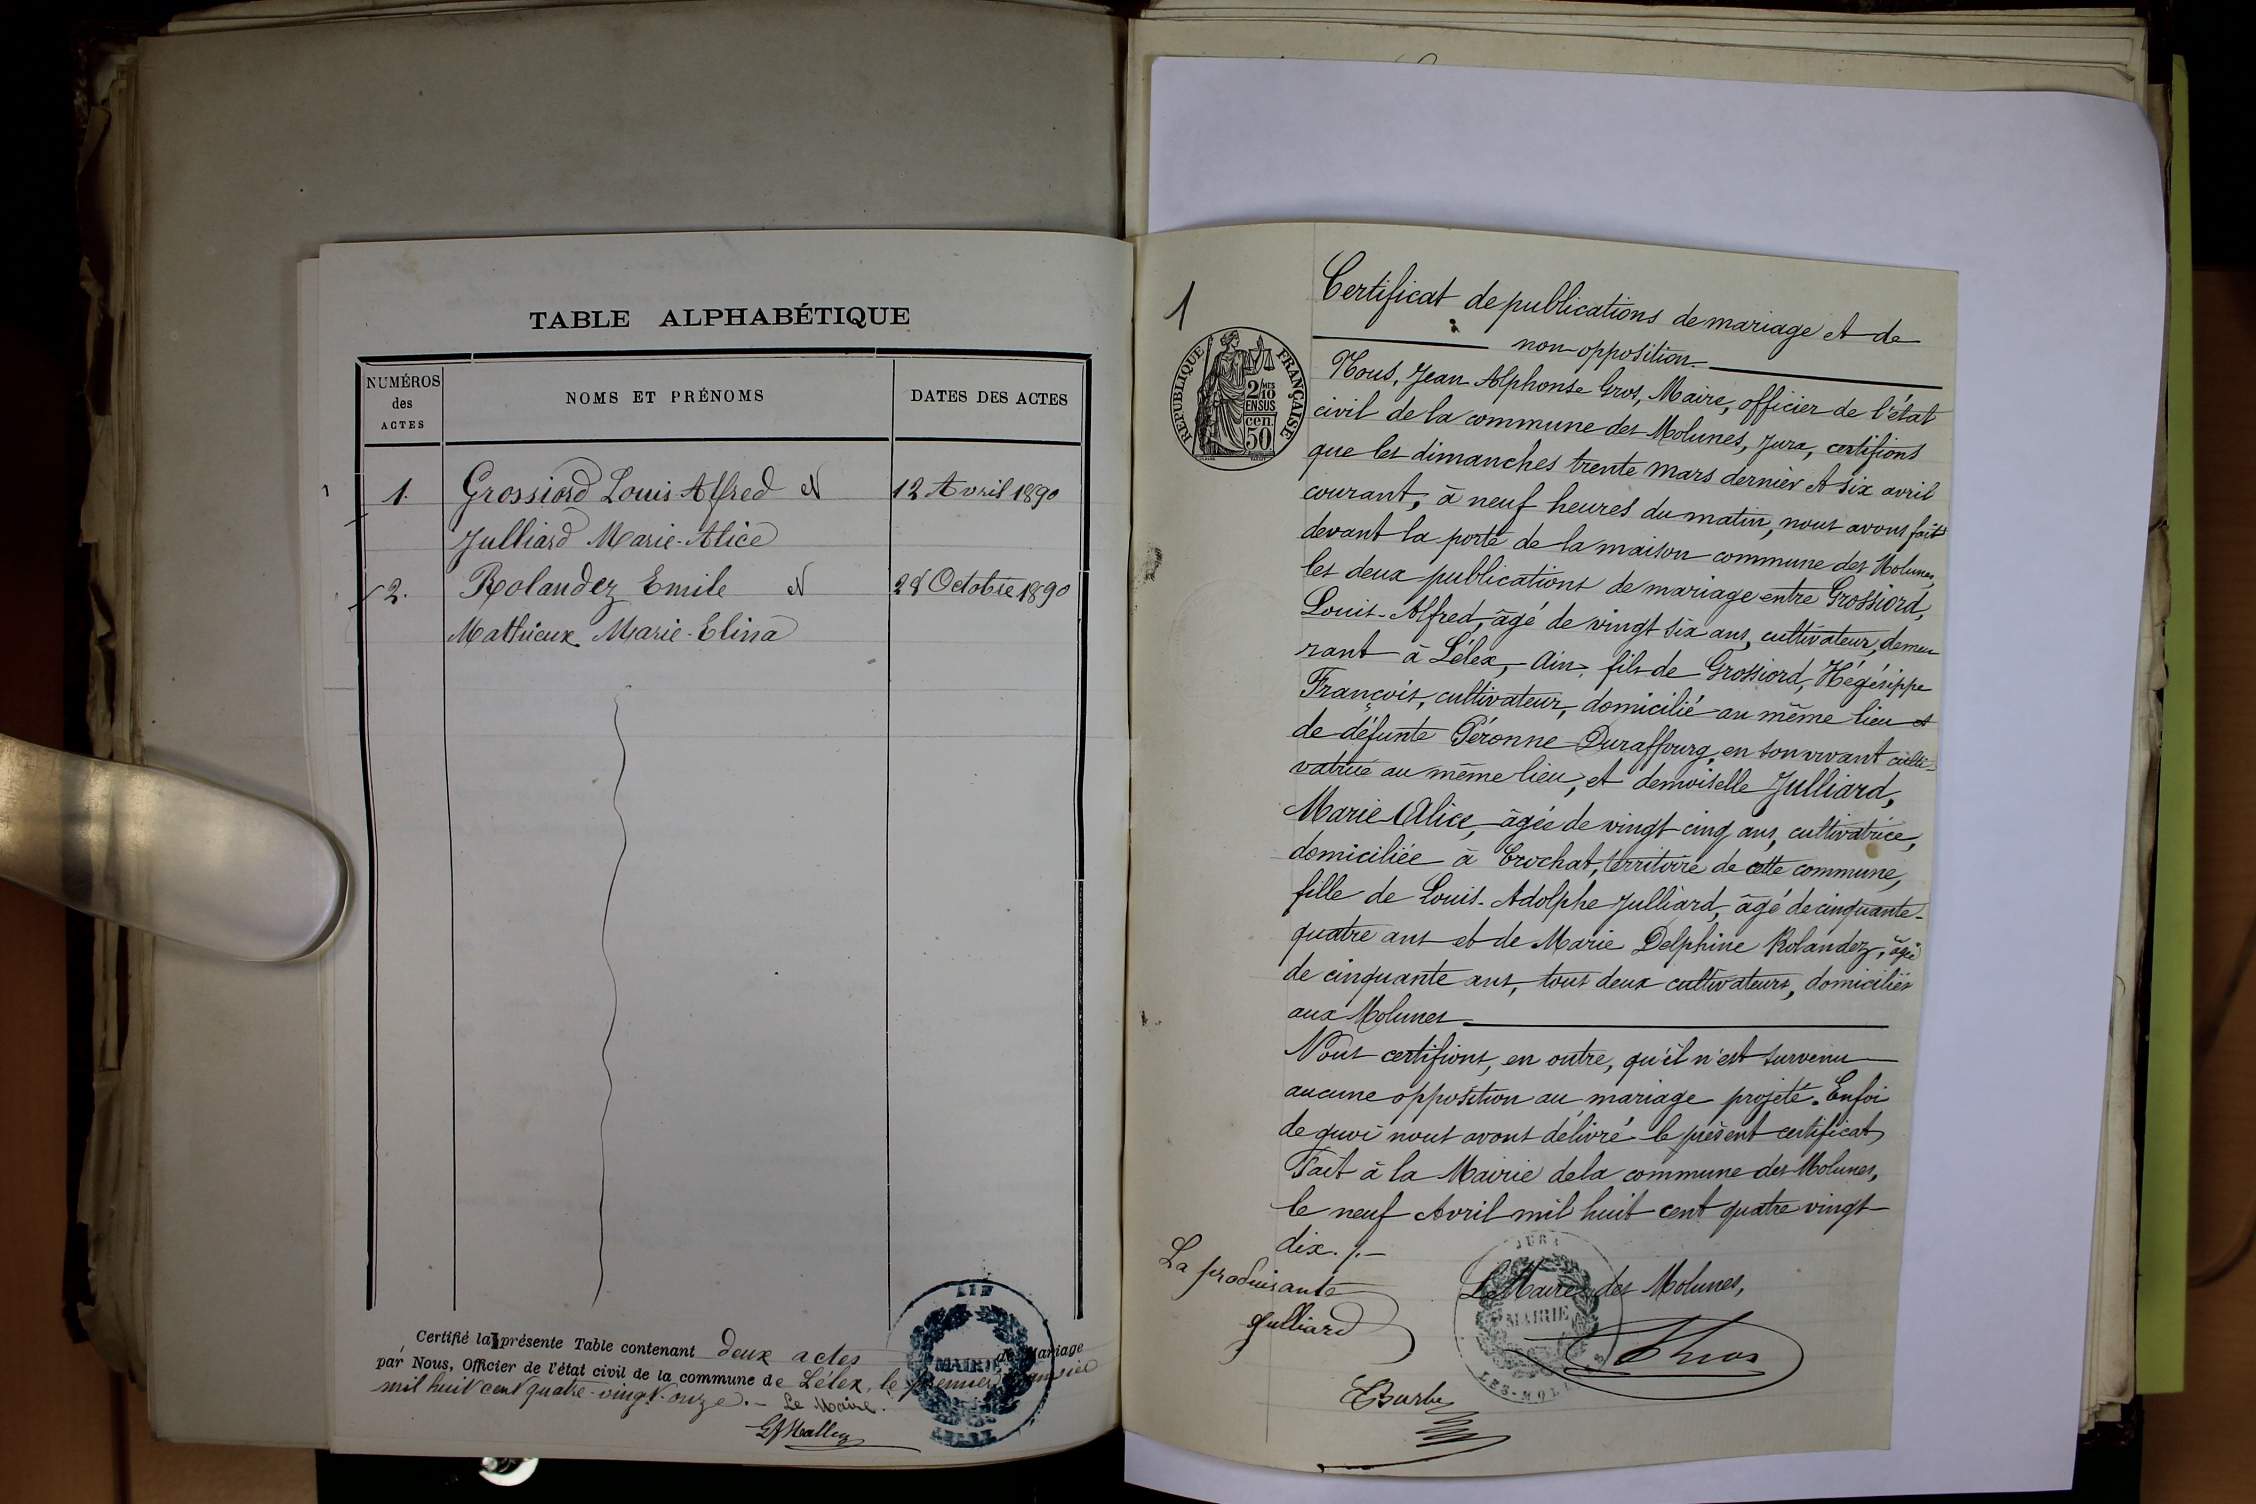 TABLE ALPHABÉTIQUE
NUMÉROS
des
ACTES
NOMS ET PRÉNOMS
DATES DES ACTES
1. Grossiord Louis-Alfred N 12 Avril 1890
Julliard Marie-Alice
2. Rolandez Emile N 28 Octobre 1890
Mathieux Marie-Elina
Certifié la présente Table contenant deux actes de Mariage
par Nous, Officier de l'état civil de la commune de Lélex, le premier Janvier
mil huit cent quatre-vingt-onze. - Le Maire.
AIN
MAIRIE
LELEX
1
RÉPUBLIQUE FRANÇAISE
2/10 MES
EN SUS
cen.
50
Certificat de publications de mariage et de
non-opposition.
Nous, Jean Alphonse Gros, Maire, officier de l'état
civil de la commune des Molunes, Jura, certifions
que les dimanches trente mars dernier et six avril
courant, à neuf heures du matin, nous avons fait
devant la porte de la maison commune des Molunes,
les deux publications de mariage entre Grossiord,
Louis-Alfred, âgé de vingt six ans, cultivateur, demeu
rant à Lélex, Ain, fils de Grossiord, Hégésippe
François, cultivateur, domicilié au même lieu et
de défunte Péronne Duraffourg, en son vivant culti-
vatrice au même lieu, et demoiselle Julliard,
Marie Alice, âgée de vingt-cinq ans, cultivatrice,
domiciliée à Crochat, territoire de cette commune,
fille de Louis-Adolphe Julliard, âgé de cinquante-
quatre ans et de Marie Delphine Rolandez, âgée
de cinquante ans, tous deux cultivateurs, domiciliés
aux Molunes
Nous certifions, en outre, qu'il n'est survenu
aucune opposition au mariage projeté. En foi
de quoi nous avons délivré le présent certificat
Fait à la Mairie de la commune des Molunes,
le neuf Avril mil huit cent quatre vingt
dix. /.
La produisante
Julliard
Le Maire des Molunes,
JURA
MAIRIE
LES-MOLUNES